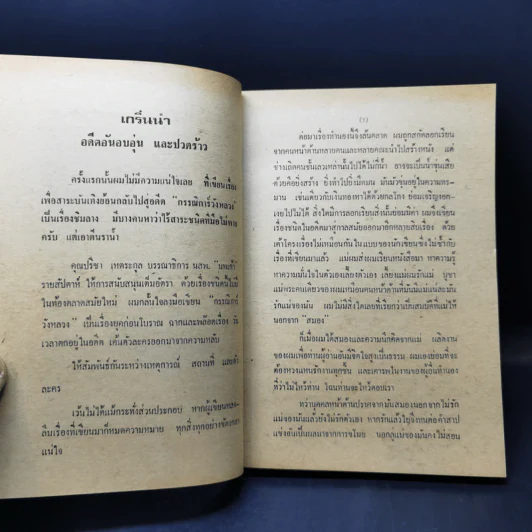 เกริ่นนำ
อดีตอันอบอุ่น และปวดร้าว
ครั้งแรกนั้นผมไม่มีความแน่ใจเลย ที่เขียนเรื่อง
เพื่อสาระบันเทิงย้อนกลับไปสู่อดีต "กรณีการ์วังหลวง"
เป็นเรื่องชิมลาง มีบางคนหาว่าไร้สาระชนิดที่มือไม่พาย
ครับ แต่เอาตีนราน้ำ
คุณปรีชา เหตระกูล บรรณาธิการ นสพ.
รายสัปดาห์ ให้การสนับสนุนเต็มอัตรา ด้วยเรื่องชนิดนี้ไม่มี
ในท้องตลาดสมัยใหม่ ผมกลั้นใจลงมือเขียน
วังหลวง" เป็นเรื่องยุคก่อนโบราณ ฉากและพล็อตเรื่อง
เวลาตกอยู่ในอดีต เค้นตัวละครออกมาจากความหลับ
ให้สัมพันธ์กันระหว่างเหตุการณ์ สถานที่
ละคร
เว้นไม่ได้แม้กระทั่งส่วนประกอบ หากผู้เขียน
ลืมเรื่องที่เขียนมาก็หมดความหมาย ทุกสิ่งทุกอย่าง
แน่ใจ
ต่อมาเรื่องทำนองนี้จึงล้นตลาด ผมถูกสกัดลอกเรียน
จากคนหน้าด้านหลายคนและหลายคณะนำไปสร้างหนัง แต่
ช่างเถิดคนชั้นเลวเหล่านั้นไปไร้ดีไม่กี่น้ำ อาจจะเป็นน้ำขุ่นเสีย
ด้วยคือยิ่งสร้าง ยิ่งทำไปยิ่งมืดมน มันมัวขุ่นอยู่ในความทร-
มาน เช่นเดียวกับเงินทองหาได้ด้วยกลโกง ย่อมเจริญงอก-
เงยไปไม่ได้ สิ่งใดมีการลอกเรียนสิ่งนั้นย่อมมีค่า ผมจึงเขียน
เรื่องชนิดในอดีตมาสู่กาลสมัยออกมาอีกหลายสิบเรื่อง ด้วย
เค้าโครงเรื่องไม่เหมือนกันในแบบของนักเขียนซึ่งไม่ซ้ำกับ
เรื่องที่เขียนมาแล้ว แม่ผมส่งผมเรียนหนังสือมา หาความรู้
หาความมั่นใจในตัวเองเลี้ยงตัวเอง เลี้ยงแม่ผมรักแม่ บูชา
แม่พระคนเดียวของผมเหมือนคนหน้าด้านที่มันมีแม่และมัน
รักแม่ของมัน ผมไม่มีสิ่งใดเลยที่เรียกว่าเป็นสมบัติที่แม่ให้
นอกจาก "สมอง"
ก็เมื่อผมได้สมองและความนึกคิดจากแม่ ผลิตงาน
ของผมเพื่อท่านผู้อ่านอันมีจิตใจสูงเป็นธรรม ผมเองย่อมที่จะ
ต้องหวงแหนบริการงานทุกชิ้น และเคารพในงานของผู้อื่นทำนอง
ที่ว่าไม่ไหว้ท่าน ไฉนท่านจะไหว้ตอบเรา
ทว่าบุคคลหน้าด้านปราศจากมันสมองนอกจากไม่รัก
แม่ของมันแล้วยังไม่รักตัวเอง หากรักแล้วไยจึงทนต่อคำสาป
แช่งอันเป็นผลมาจากการขโมย นอกลู่แม่ของมันคงไม่สอน